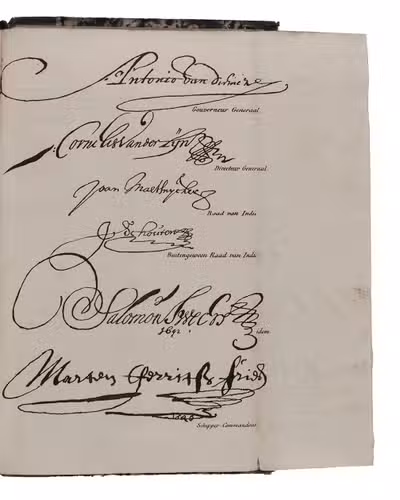 Antonio van Diemen
Gouverneur Generaal
Cornelis van der Lijn
Directeur Generaal
Joan Maetsuycker
Raad van Indië
Buitengewoon Raad van Indë
Salomon Sweers
idem
Marten Gerritsz Fries
Schipper Commandeur